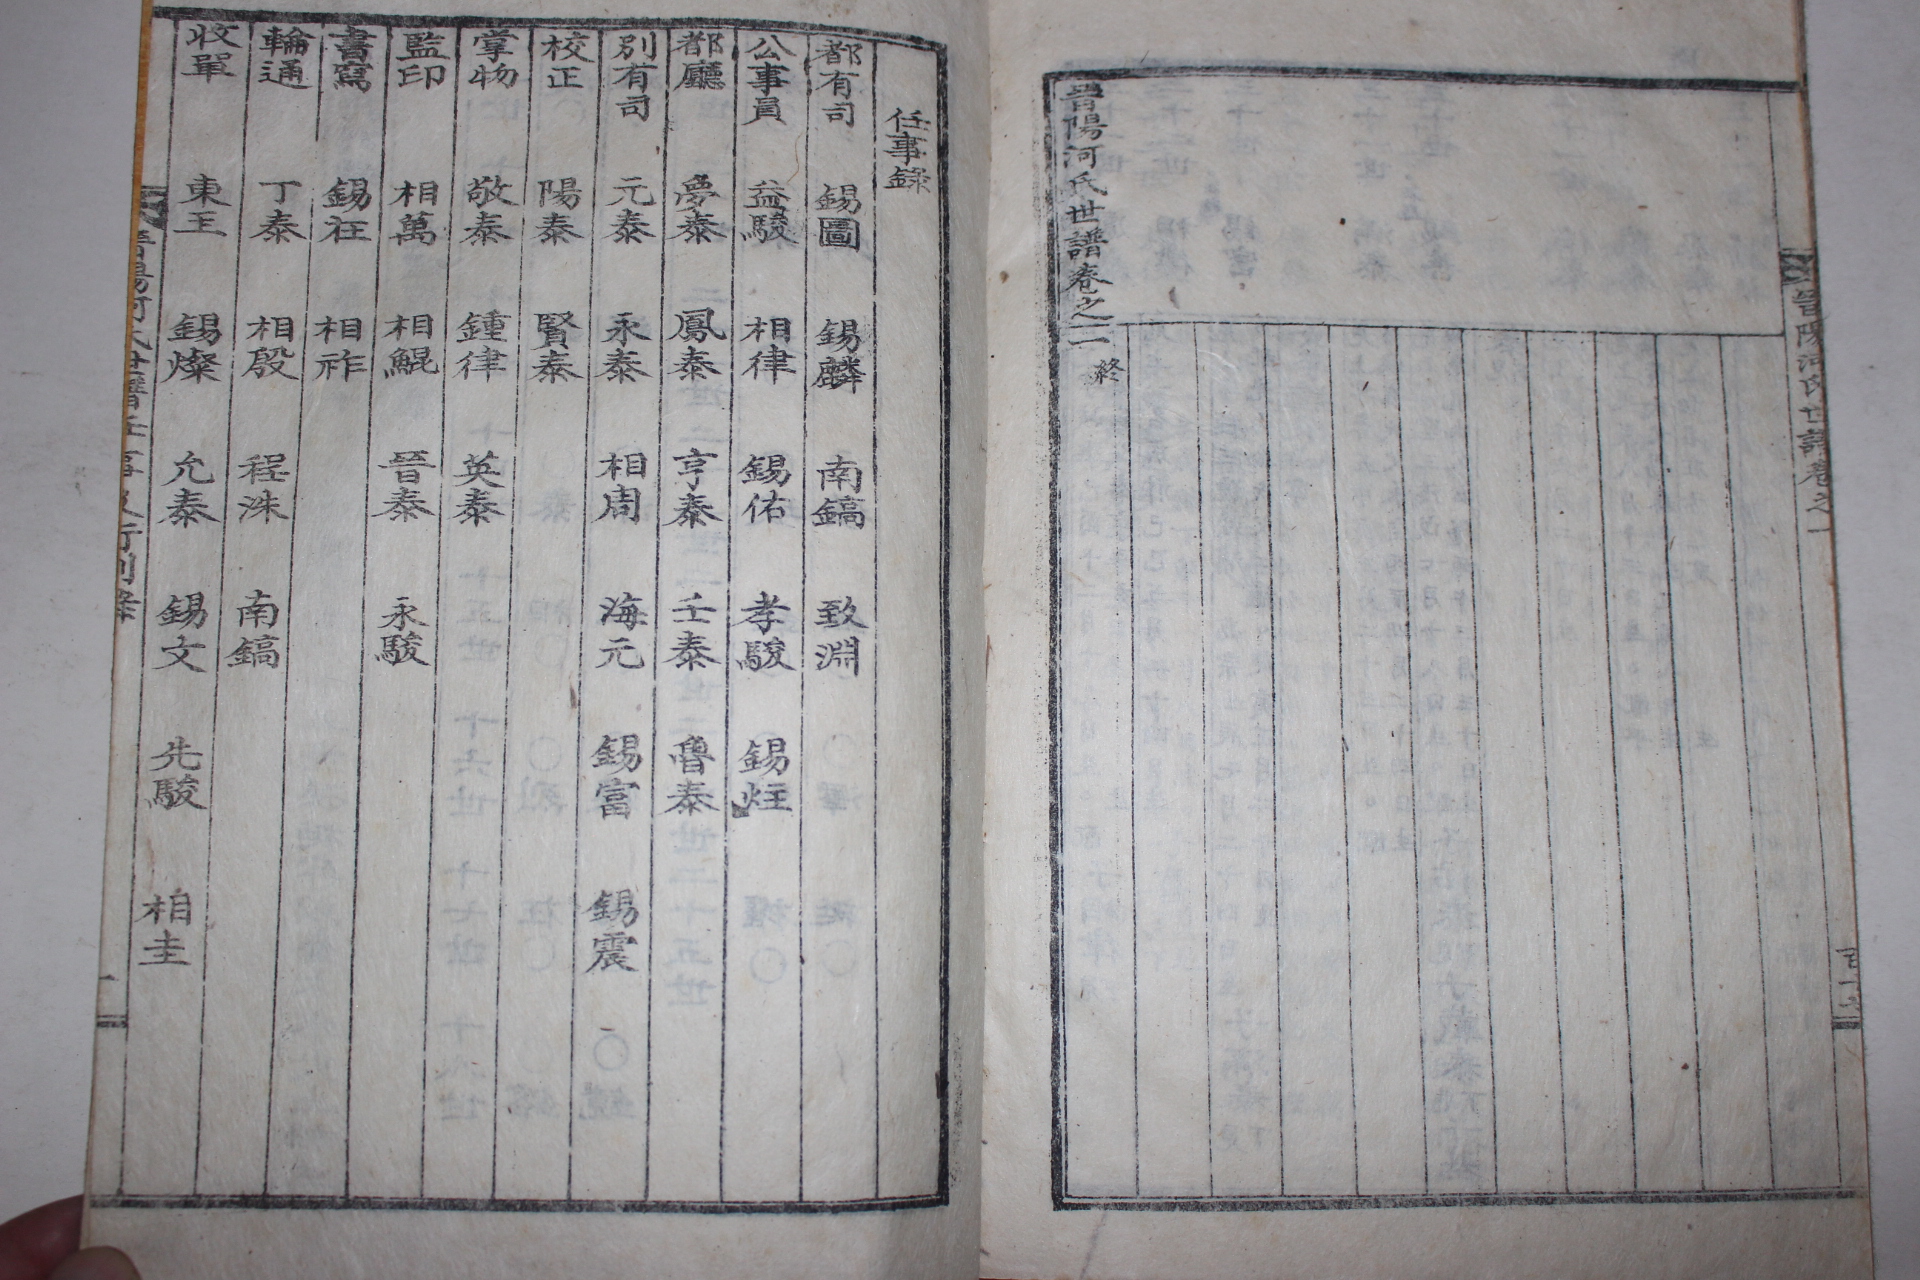 晉陽河氏世譜卷之一
晉陽河氏世譜卷之二 終
任事錄
都有司 錫圖 錫麟 南鎬 致淵
公事員 益駿 相律 錫佑 孝駿 錫炷
都廳 夢泰 鳳泰 亨泰 壬泰 魯泰
別有司 元泰 永泰 相周 海元 錫富 錫震
校正 陽泰 賢泰
掌物 敬泰 鍾律 英泰
監印 相萬 相鯤 晉泰 永駿
書寫 錫祍 相祚
輪通 丁泰 相殷 程洙 南鎬
收單 東王 錫燦 允泰 錫文 先駿 相圭
晉陽河氏世譜任事 行列 一